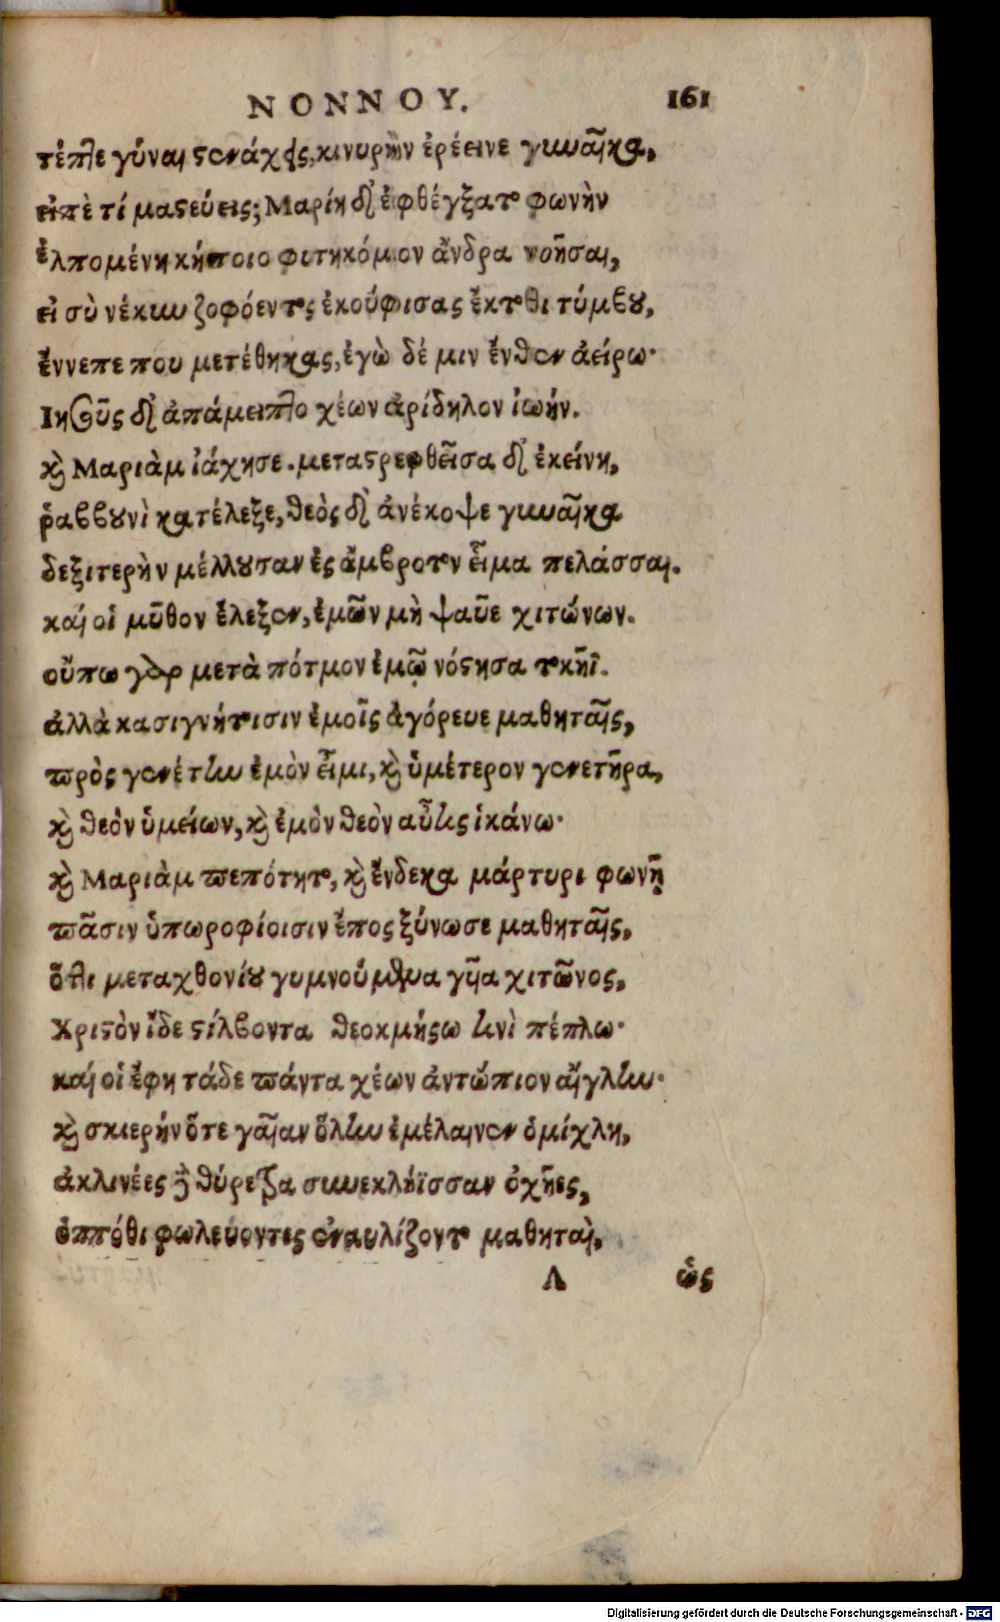 ΝΟΝΝΟΥ. 161
τέπτε γύναι στενάχεις, κινυρὴν ἐρέεινε γυναῖκα,
εἰπὲ τί μαστεύεις; Μαρίη δ' ἐφθέγξατο φωνὴν
ἐλπομένη κήποιο φυτηκόμον ἄνδρα νοῆσαι,
εἰ σὺ νέκυν ζοφόεντος ἐκούφισας ἔκτοθι τύμβου,
ἔννεπε που μετέθηκας, ἐγὼ δέ μιν ἔνθεν ἀείρω·
Ιησοῦς δ' ἀπάμειπτο χέων ἀρίδηλον ἰωήν.
καὶ Μαριὰμ ἰάχησε. μεταστρεφθεῖσα δ' ἐκείνη,
ῥαββουνὶ κατέλεξε, θεὸς δ' ἀνέκοψε γυναῖκα
δεξιτερὴν μέλλουσαν ἐς ἄμβροτον εἷμα πελάσσαι.
καί οἱ μῦθον ἔλεξεν, ἐμῶν μὴ ψαῦε χιτώνων.
οὔπω γὰρ μετὰ πότμον ἐμῷ νόστησα τοκῆϊ.
ἀλλὰ κασιγνήτοισιν ἐμοῖς ἀγόρευε μαθηταῖς,
πρὸς γενέτην ἐμὸν εἶμι, καὶ ὑμέτερον γενετῆρα,
καὶ θεὸν ὑμείων, καὶ ἐμὸν θεὸν αὖτις ἱκάνω·
καὶ Μαριὰμ πεπότητο, καὶ ἕνδεκα μάρτυρι φωνῇ
πᾶσιν ὑπωροφίοισιν ἔπος ξύνωσε μαθηταῖς,
ὅττι μεταχθονίου γυμνούμενα γυῖα χιτῶνος,
Χριστὸν ἴδε στίλβοντα θεοκμήτῳ ἑνὶ πέπλῳ·
καί οἱ ἔφη τάδε πάντα χέων ἀντώπιον αἴγλην·
καὶ σκιερήν ὅτε γαῖαν ὅλην ἐμέλαινεν ὁμίχλη,
ἀκλινέες δὲ θύρετρα συνεκλήϊσσαν ὀχῆες,
ὁππόθι φωλεύοντες ἐναυλίζοντο μαθηταὶ,
Λ ὡς
Digitalisierung gefördert durch die Deutsche Forschungsgemeinschaft - DFG